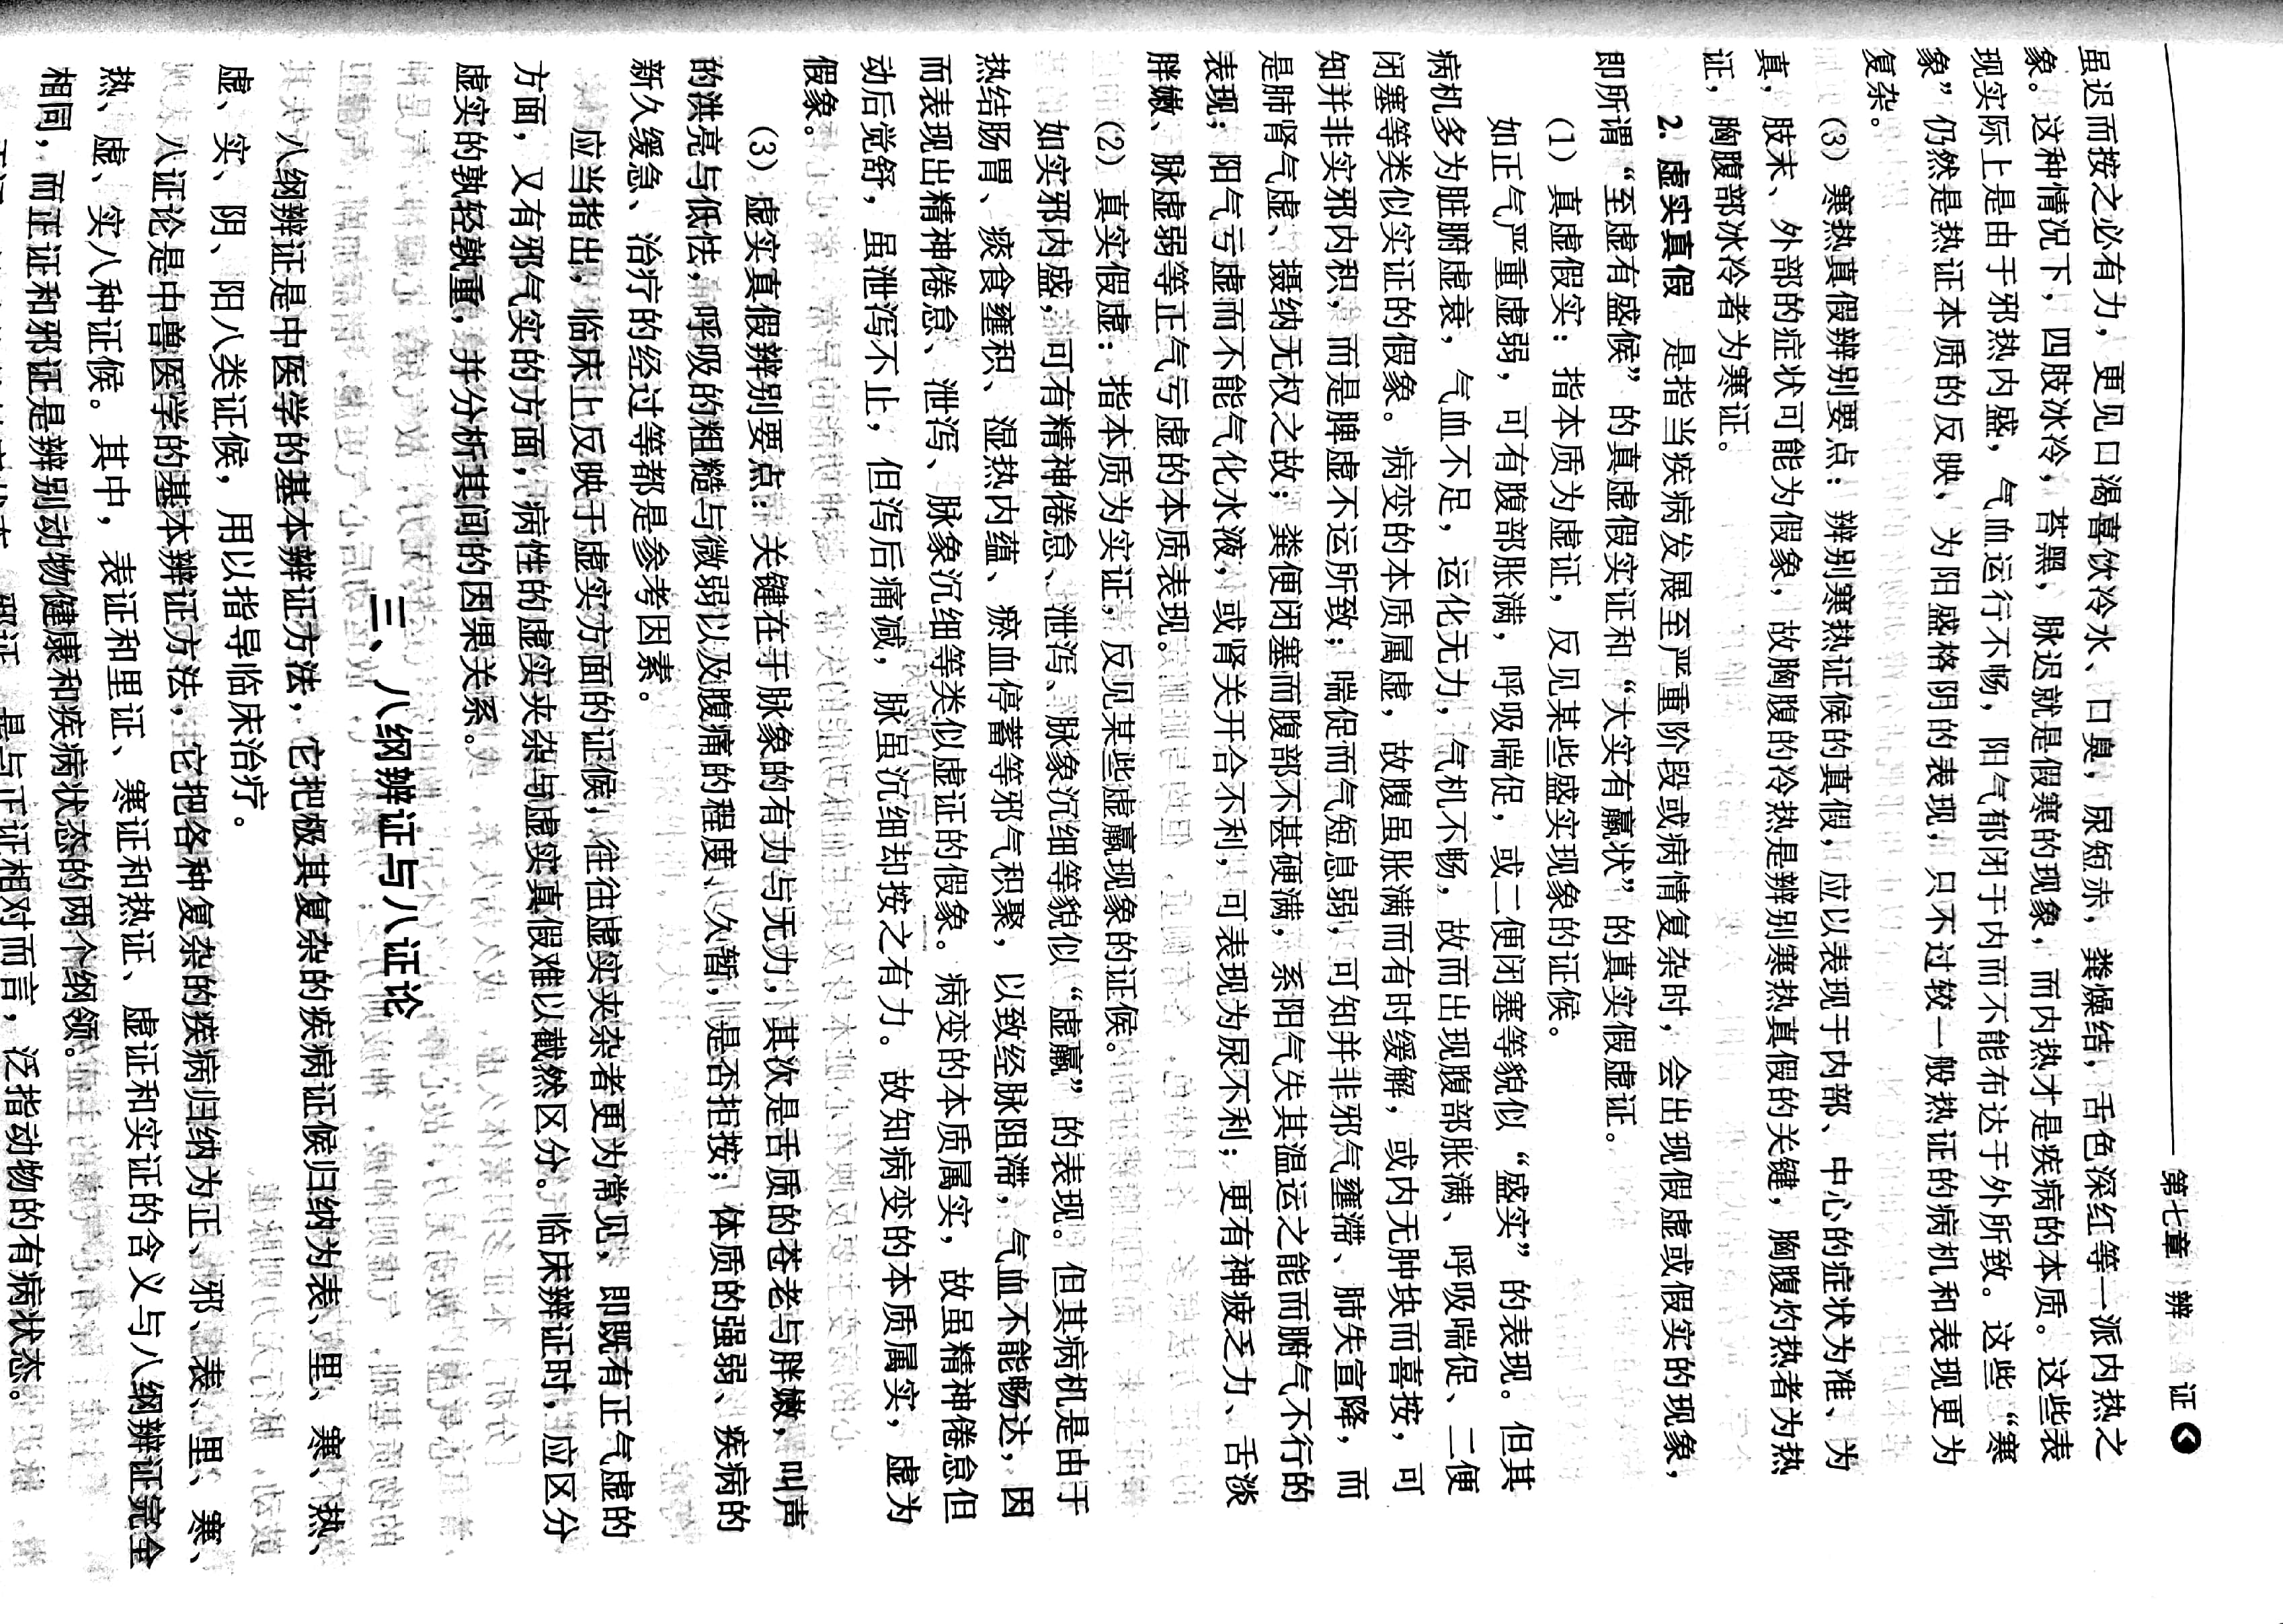 第七章 辨 证
虽迟而按之必有力，更见口渴喜饮冷水、口臭，尿短赤，粪燥结，舌色深红等一派内热之
象。这种情况下，四肢冰冷，苔黑，脉迟就是假寒的现象，而内热才是疾病的本质。这些表
现实际上是由于邪热内盛，气血运行不畅，阳气郁闭于内而不能布达于外所致。这些“寒
象”仍然是热证本质的反映，为阳盛格阴的表现，只不过较一般热证的病机和表现更为
复杂。
（3）寒热真假辨别要点：辨别寒热证候的真假，应以表现于内部、中心的症状为准、为
真，肢末、外部的症状可能为假象，故胸腹的冷热是辨别寒热真假的关键，胸腹灼热者为热
证，胸腹部冰冷者为寒证。
2. 虚实真假 是指当疾病发展至严重阶段或病情复杂时，会出现假虚或假实的现象，
即所谓“至虚有盛候”的真虚假实证和“大实有羸状”的真实假虚证。
（1）真虚假实：指本质为虚证，反见某些盛实现象的证候。
如正气严重虚弱，可有腹部胀满，呼吸喘促，或二便闭塞等貌似“盛实”的表现。但其
病机多为脏腑虚衰，气血不足，运化无力，气机不畅，故而出现腹部胀满、呼吸喘促、二便
闭塞等类似实证的假象。病变的本质属虚，故腹虽胀满而有时缓解，或内无肿块而喜按，可
知并非实邪内积，而是脾虚不运所致；喘促而气短息弱，可知并非邪气壅滞、肺失宣降，而
是肺肾气虚、摄纳无权之故；粪便闭塞而腹部不甚硬满，系阳气失其温运之能而腑气不行的
表现；阳气亏虚而不能气化水液，或肾关开合不利，可表现为尿不利；更有神疲乏力、舌淡
胖嫩、脉虚弱等正气亏虚的本质表现。
（2）真实假虚：指本质为实证，反见某些虚羸现象的证候。
如实邪内盛，可有精神倦怠、泄泻、脉象沉细等貌似“虚羸”的表现。但其病机是由于
热结肠胃、痰食壅积、湿热内蕴、瘀血停蓄等邪气积聚，以致经脉阻滞，气血不能畅达，因
而表现出精神倦怠、泄泻、脉象沉细等类似虚证的假象。病变的本质属实，故虽精神倦怠但
动后觉舒，虽泄泻不止，但泻后痛减，脉虽沉细却按之有力。故知病变的本质属实，虚为
假象。
（3）虚实真假辨别要点：关键在于脉象的有力与无力，其次是舌质的苍老与胖嫩，叫声
的洪亮与低怯，呼吸的粗糙与微弱以及腹痛的程度、久暂，是否拒按；体质的强弱、疾病的
新久缓急、治疗的经过等都是参考因素。
应当指出，临床上反映于虚实方面的证候，往往虚实夹杂者更为常见，即既有正气虚的
方面，又有邪气实的方面，病性的虚实夹杂与虚实真假难以截然区分。临床辨证时，应区分
虚实的孰轻孰重，并分析其间的因果关系。
三、八纲辨证与八证论
八纲辨证是中医学的基本辨证方法，它把极其复杂的疾病证候归纳为表、里、寒、热、
虚、实、阴、阳八类证候，用以指导临床治疗。
八证论是中兽医学的基本辨证方法，它把各种复杂的疾病归纳为正、邪、表、里、寒、
热、虚、实八种证候。其中，表证和里证、寒证和热证、虚证和实证的含义与八纲辨证完全
相同，而正证和邪证是辨别动物健康和疾病状态的两个纲领。
邪证 是与正证相对而言，泛指动物的有病状态。